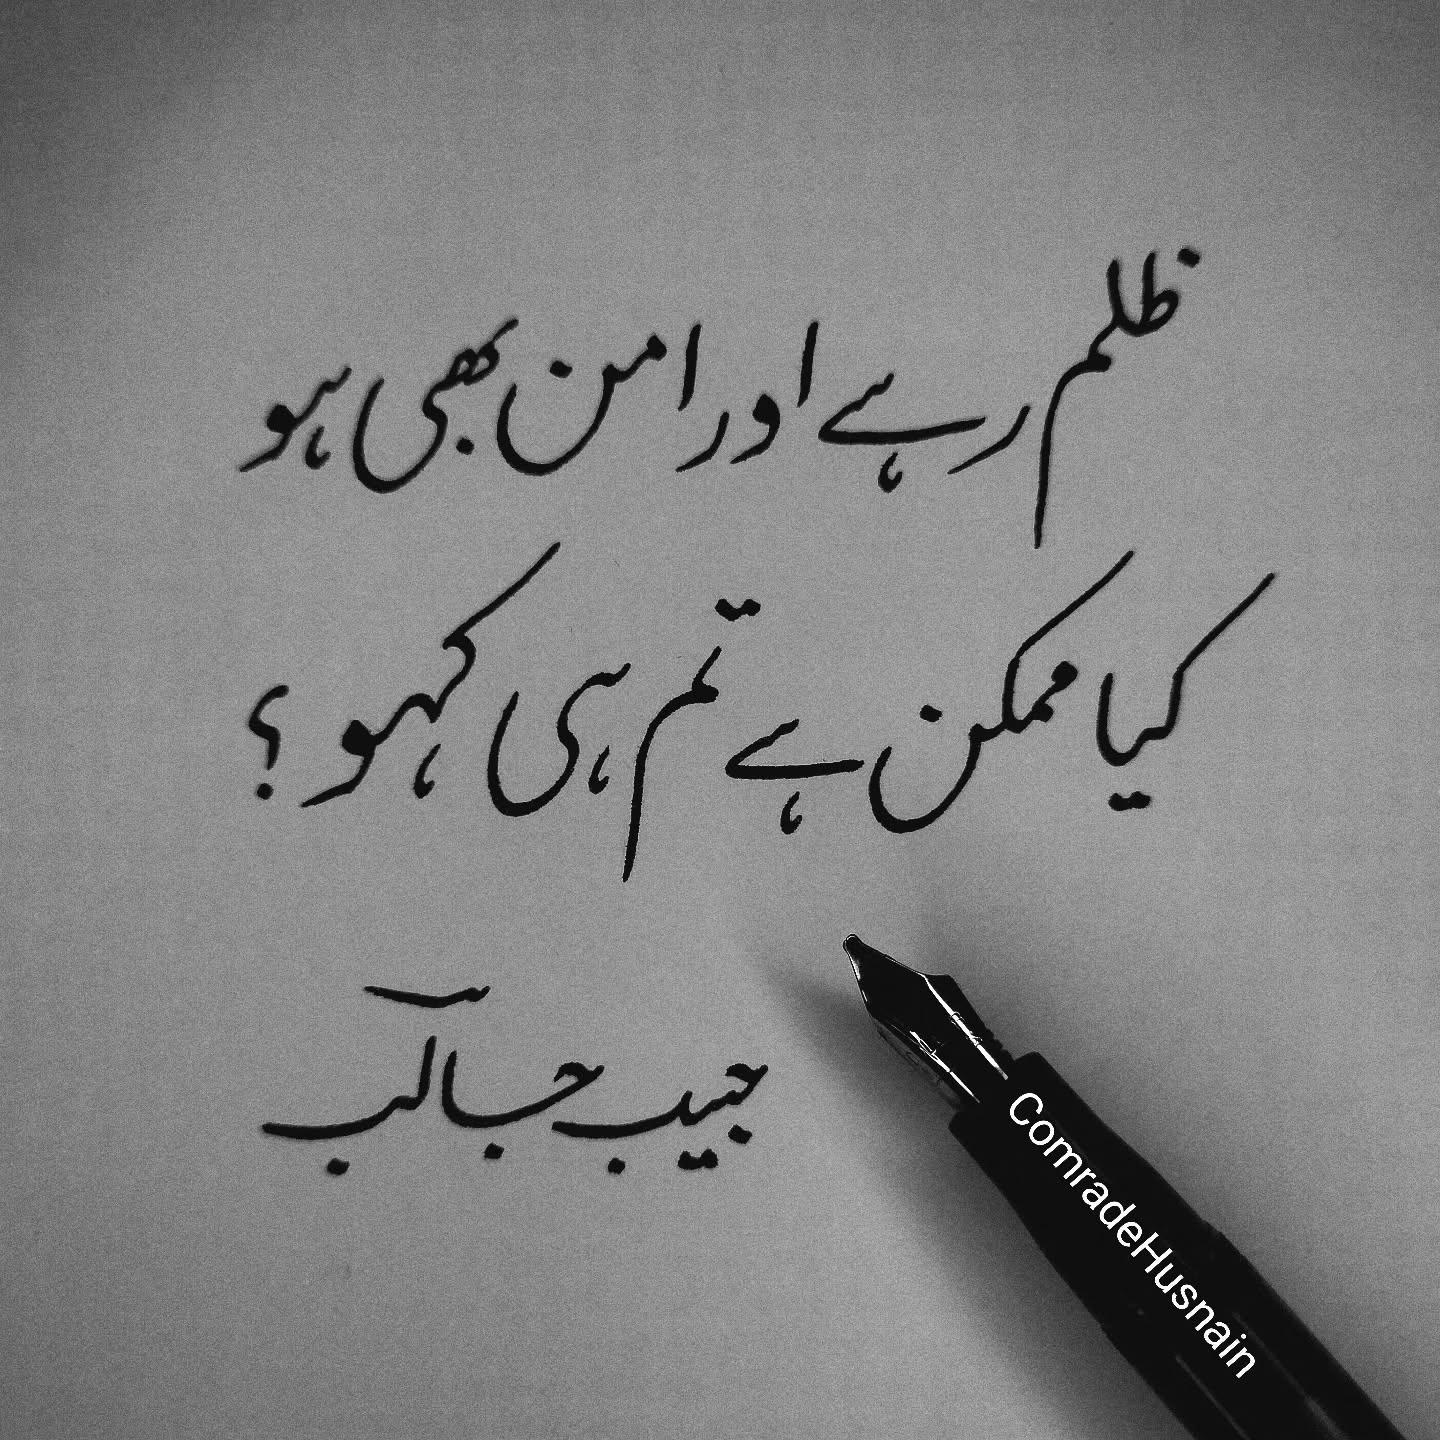 ظلم رہے اور امن بھی ہو
کیا ممکن ہے تم ہی کہو؟
حبیب جالب
ComradeHusnain